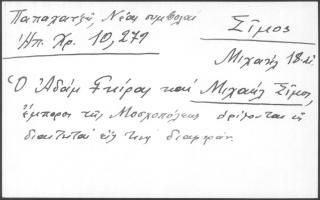 Παπαχατζῆ, Νέαι συμβολαί
Ἠπ. Χρ. 10, 279
Σῖμος
Μιχαήλ 18 αἰ.
Ὁ Ἀδάμ Γκίρας καί Μιχαήλ Σῖμος,
ἔμποροι τῆς Μοσχοπόλεως ὁρίζονται ὡς
διαιτηταί εἰς τινα διαφοράν.